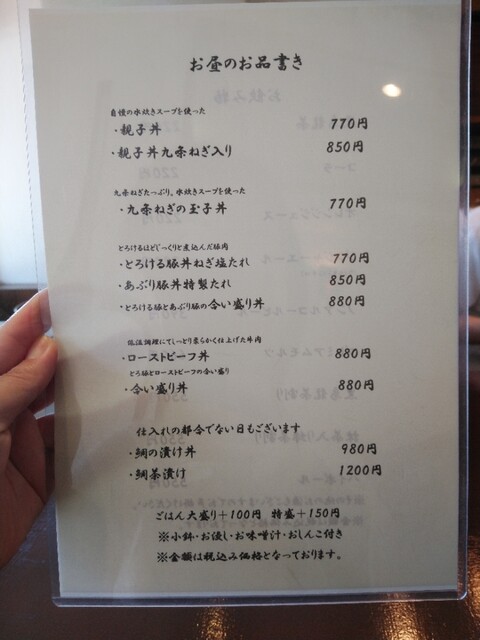 お昼のお品書き
自慢の水炊きスープを使った
・親子丼 770円
・親子丼九条ねぎ入り 850円
九条ねぎたっぷり、水炊きスープを使った
・九条ねぎの玉子丼 770円
とろけるほどじっくりと煮込んだ豚肉
・とろける豚丼ねぎ塩たれ 770円
・あぶり豚丼特製たれ 850円
・とろける豚とあぶり豚の合い盛り丼 880円
低温調理にてしっとり柔らかく仕上げた牛肉
・ローストビーフ丼 880円
とろ豚とローストビーフの合い盛り
・合い盛り丼 880円
仕入れの都合でない日もございます
・鯛の漬け丼 980円
・鯛茶漬け 1200円
ごはん大盛り+100円 特盛+150円
※小鉢・お漬し・お味噌汁・おしんこ付き
※金額は税込み価格となっております。